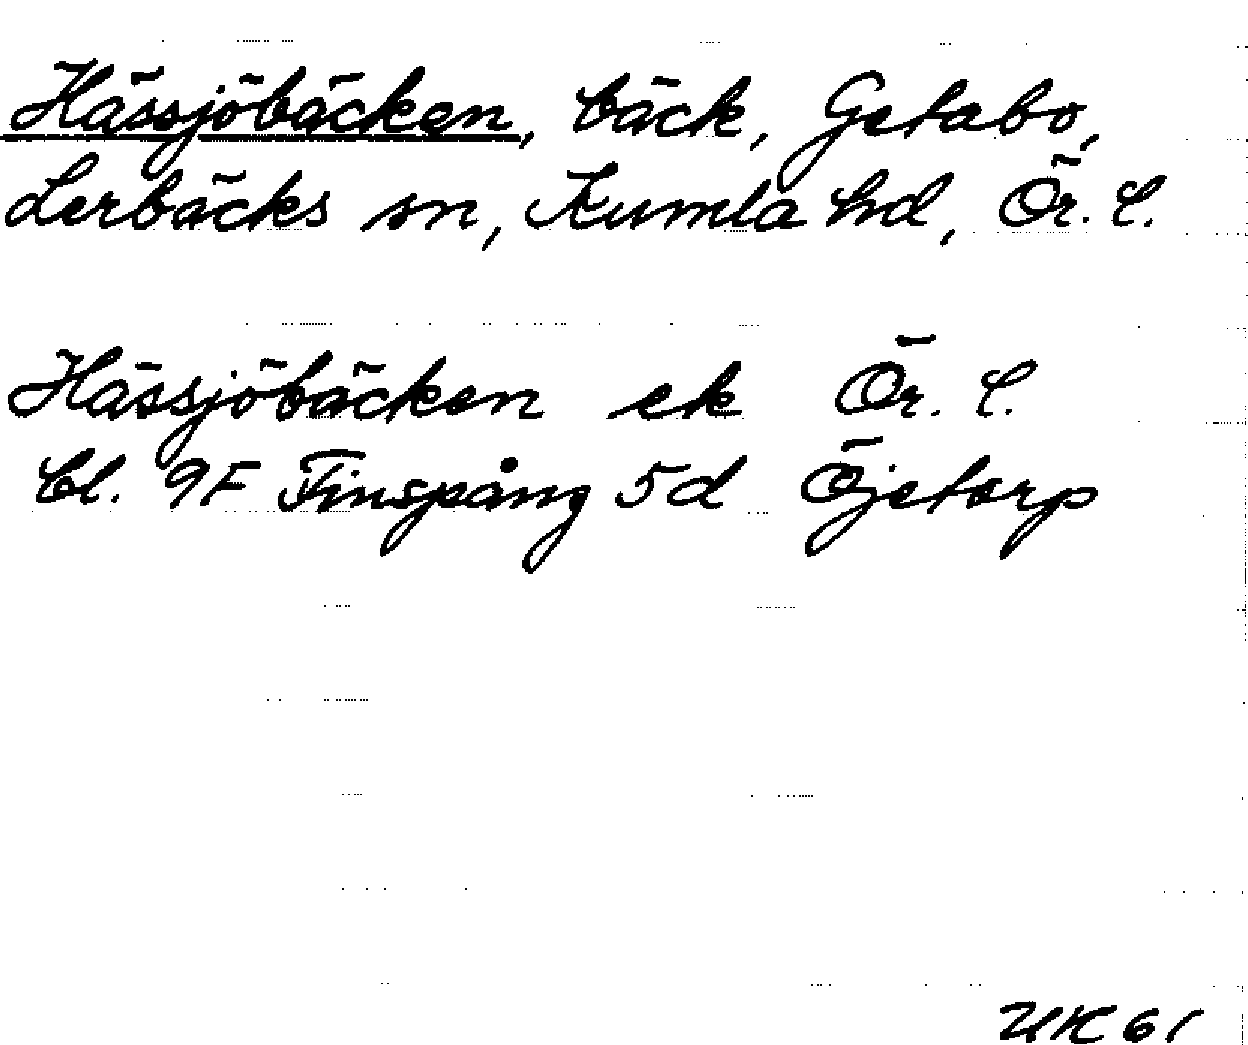 Hässjöbäcken, bäck, Getabo,
Lerbäcks sn, Kumla hd, Ör. l.
Hässjöbäcken ek Ör. l.
bl. 9F Finspång 5d Öjetorp
UK 61